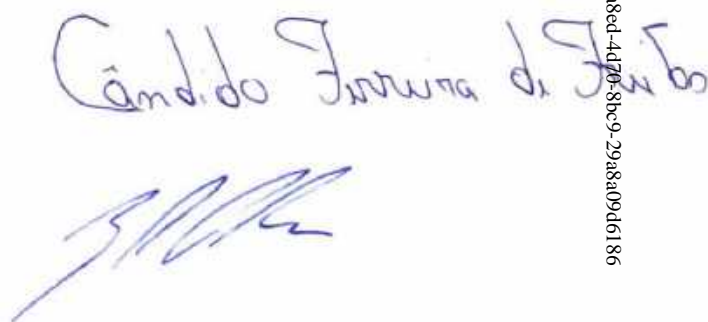 Cândido Ferreira de Freitas
8ed-4d70-8bc9-29a8a09d6186